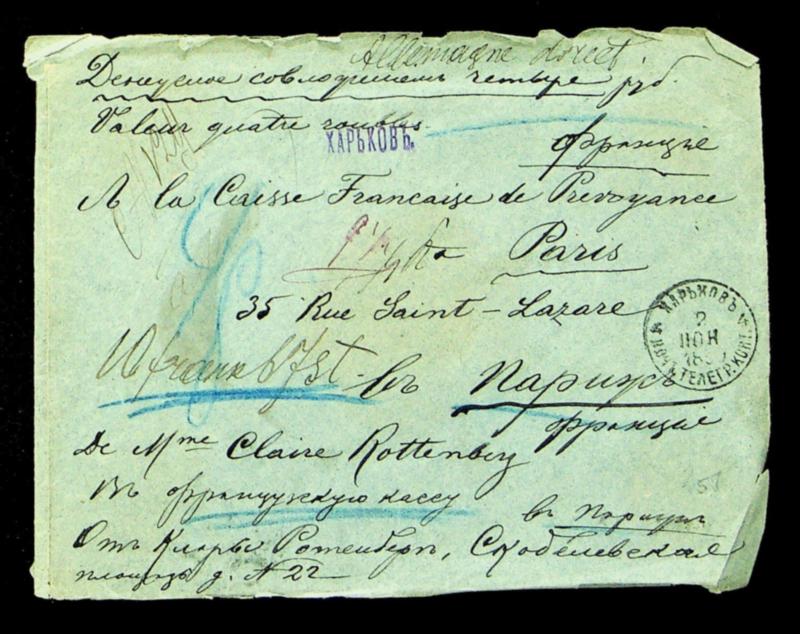 Allemagne direct
Денежное совложением четыре руб.
Valeur quatre roubles
ХАРЬКОВЪ.
Францiе
A la Caisse Francaise de Prevoyance
Paris
35 Rue Saint-Lazare
ХАРЬКОВЪ
2
ІЮН
ТЕЛЕГР. КОНТ.
въ Парижъ
Францiе
De Mme Claire Rottenberg
Въ французскую кассу
въ Парижъ
Отъ Клары Ротенбергъ, Скобелевская
площадь д. N 22
51